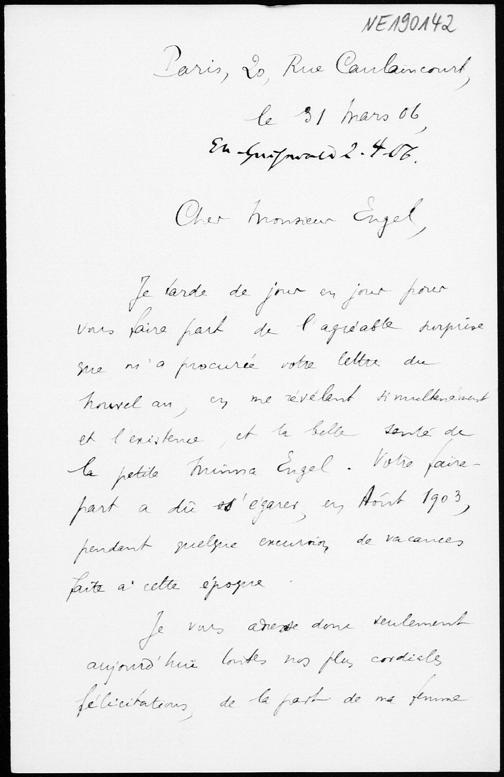 NE190142
Paris, 20, Rue Caulaincourt,
le 31 mars 06,
En Greifswald 2.4.06.
Cher Monsieur Engel,
Je tarde de jour en jour pour
vous faire part de l'agréable surprise
que m'a procurée votre lettre du
nouvel an, en me révélant simultanément
et l'existence, et la belle santé de
la petite Minna Engel. Votre faire-
part a dû s'égarer, en Août 1903,
pendant quelque excursion de vacances
faite à cette époque.
Je vous adresse donc seulement
aujourd'hui toutes nos plus cordiales
félicitations, de la part de ma femme